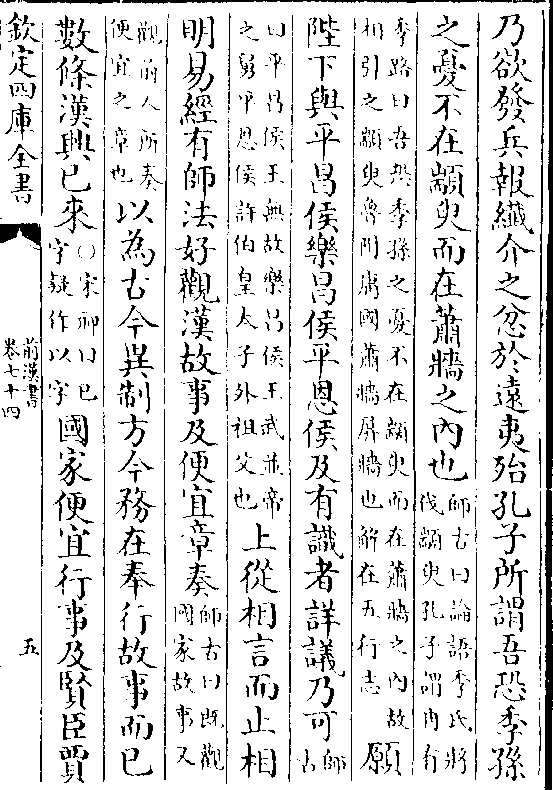 乃欲發兵報纖介之忿於遠夷殆孔子所謂吾恐季孫
之憂不在顓臾而在蕭牆之內也師古曰論語季氏將伐顓臾孔子謂冉有
季路曰吾恐季孫之憂不在顓臾而在蕭牆之內故相引之顓臾魯附庸國蕭牆屏牆也解在五行志願
陛下與平昌侯樂昌侯平恩侯及有識者詳議乃可師古
曰平昌侯王無故樂昌侯王武並帝之舅平恩侯許伯皇太子外祖父也上從相言而止相
明易經有師法好觀漢故事及便宜章奏師古曰既觀國家故事又
觀前人所奏便宜之章也以為古今異制方今務在奉行故事而已
數條漢興已來○宋祁曰已字疑作以字國家便宜行事及賢臣賈
欽定四庫全書
前漢書
卷七十四
五